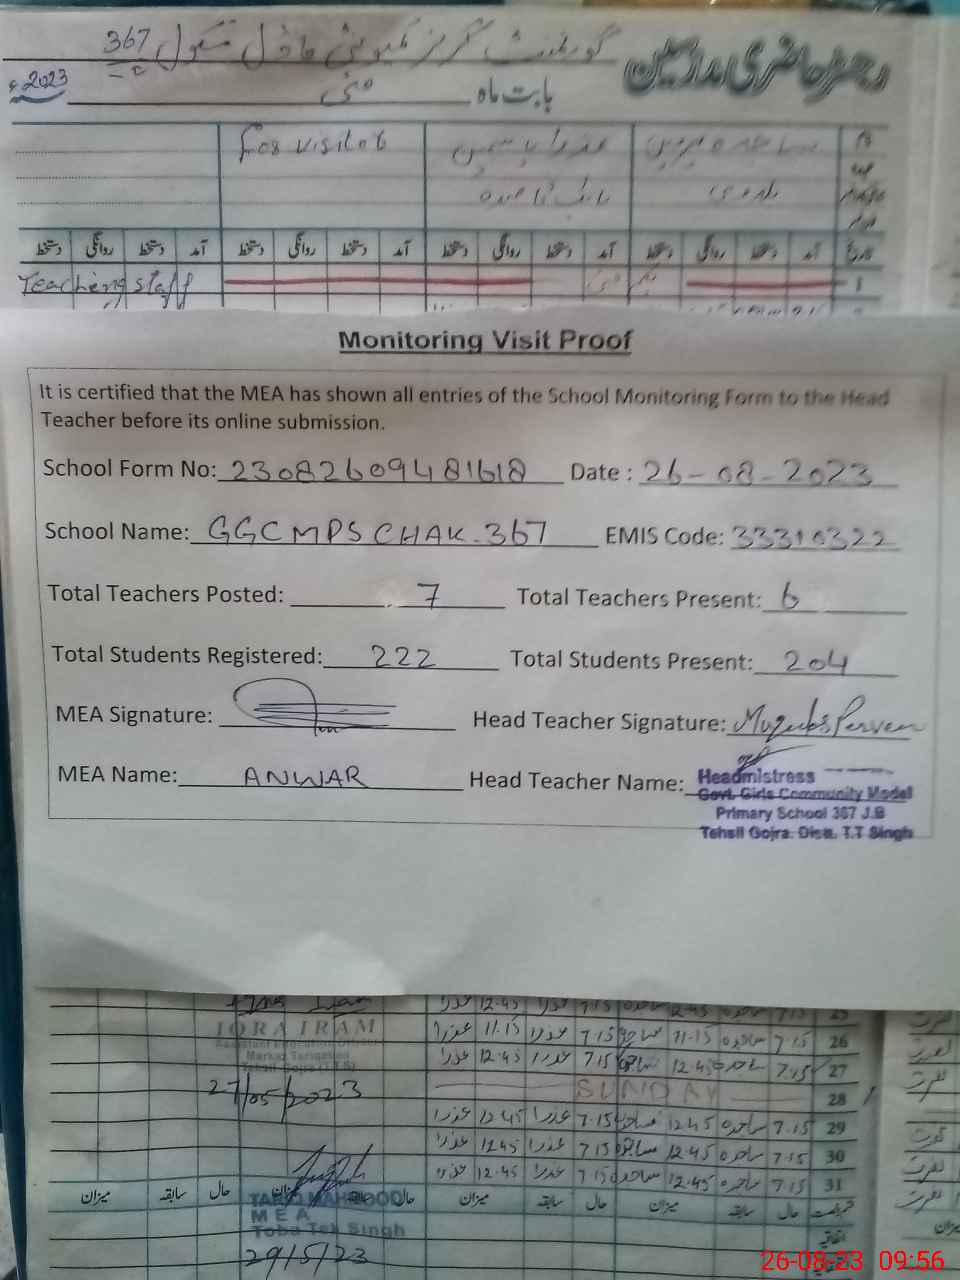 رجسٹر حاضری مدرسین
گورنمنٹ گرلز کمیونٹی ماڈل سکول 367
بابت ماہ مئی 2023ء
For visitor
آمد دستخط روانگی دستخط آمد دستخط روانگی دستخط آمد دستخط روانگی دستخط آمد دستخط روانگی دستخط
1
Teaching staff
Monitoring Visit Proof
It is certified that the MEA has shown all entries of the School Monitoring Form to the Head
Teacher before its online submission.
School Form No: 23082609481618 Date : 26-08-2023
School Name: GGCMPS CHAK.367 EMIS Code: 33310322
Total Teachers Posted: 7 Total Teachers Present: 6
Total Students Registered: 222 Total Students Present: 204
MEA Signature: Head Teacher Signature:
MEA Name: ANWAR Head Teacher Name:
Headmistress
Govt. Girls Community Model
Primary School 367 J.B
Tehsil Gojra. Distt. T.T Singh
25 7.15 ساجدہ 12.45 ساجدہ 7.15 عذرا 12.45 عذرا
IQRA IRAM
26 7.15 ساجدہ 11.15 ساجدہ 7.15 عذرا 11.15 عذرا
27 7.15 ساجدہ 12.45 ساجدہ 7.15 عذرا 12.45 عذرا
27/05/2023
28 SUNDAY
29 7.15 ساجدہ 12.45 ساجدہ 7.15 عذرا 12.45 عذرا
30 7.15 ساجدہ 12.45 ساجدہ 7.15 عذرا 12.45 عذرا
31 7.15 ساجدہ 12.45 ساجدہ 7.15 عذرا 12.45 عذرا
حال سابقہ میزان حال سابقہ میزان حال سابقہ میزان
TARIQ MAHMOOD
MEA
Toba Tek Singh
29/5/23
26-08-23 09:56